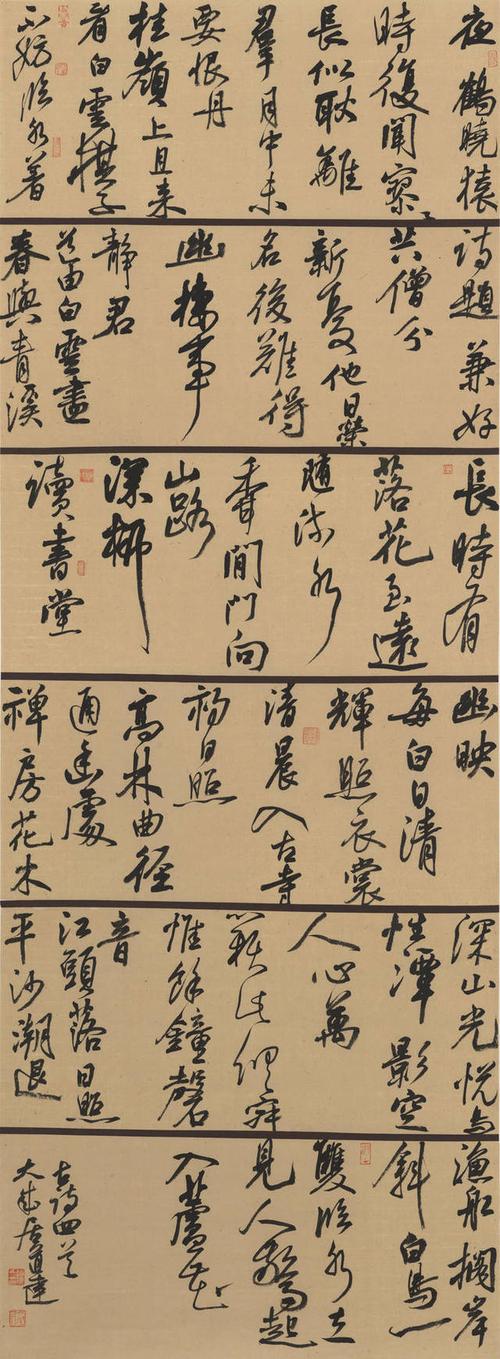 夜鶴曉猿
時復聞寥〻
長似耿離
羣月中未
要恨丹
桂嶺上且来
看白雲棋子
不妨临水着
詩題兼好
共僧分
新憂他日榮
名後難得
幽棲事
静君
道由白雲盡
春與青溪
長時有
落花至遠
随流水
香閒門向
山路
深柳
讀書堂
幽映
每白日清
輝照衣裳
清晨入古寺
初日照
高林曲徑
通幽處
禅房花木
深山光悦鸟
性潭影空
人心萬
籁此俱寂
惟餘鐘磬
音
江頭落日照
平沙潮退
漁船擱岸
斜白鳥一
雙临水立
見人驚起
入蘆花
古詩四首
大成居道